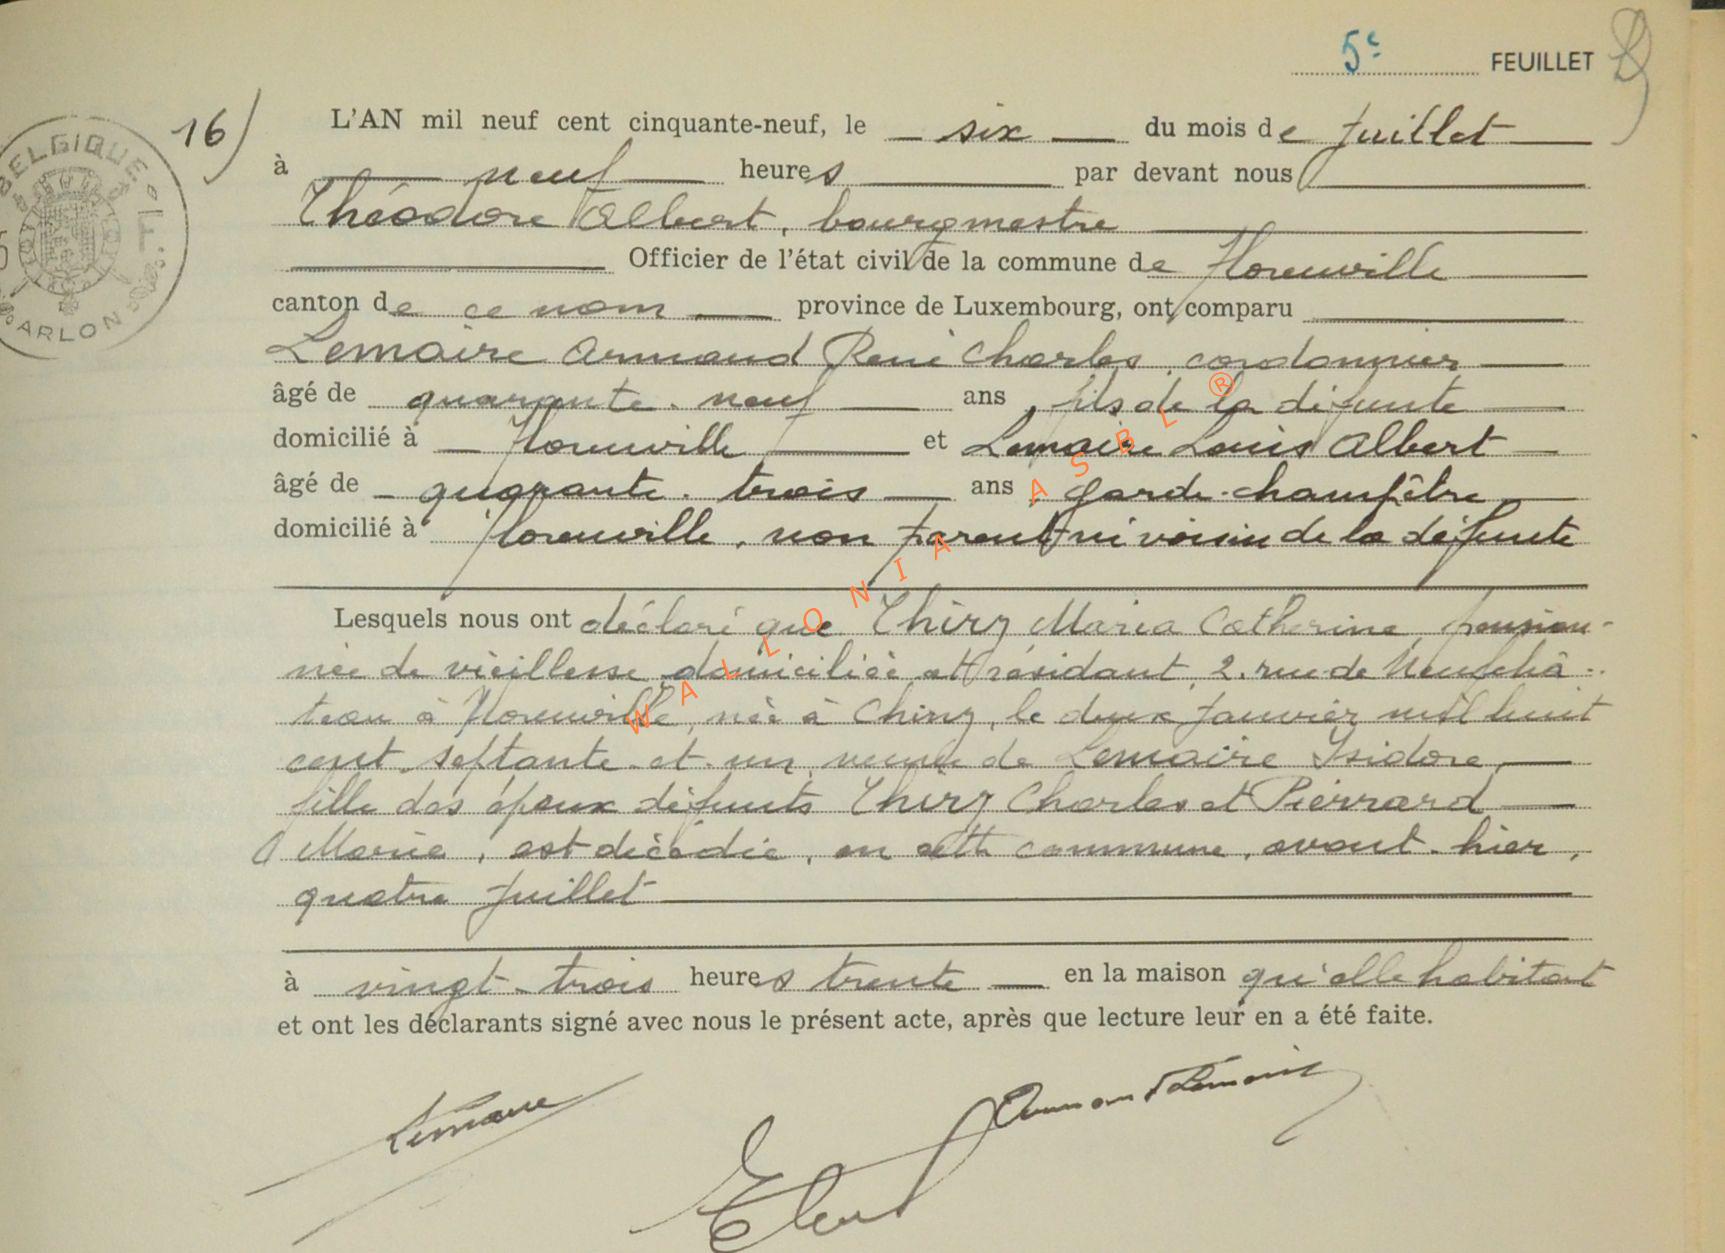 5e FEUILLET
16) L'AN mil neuf cent cinquante-neuf, le six du mois de Juillet
à neuf heures par devant nous
Théodore Albert, bourgmestre
Officier de l'état civil de la commune de Florenville
canton de ce nom province de Luxembourg, ont comparu
Lemaire Armand René Charles, cordonnier
âgé de quarante-neuf ans, fils de la défunte
domicilié à Florenville et Lemaire Louis Albert
âgé de quarante-trois ans, garde-champêtre,
domicilié à Florenville, non parent ni voisin de la défunte
Lesquels nous ont déclaré que Thiry Maria Catherine, pension-
née de vieillesse, domiciliée et résidant, 2, rue de Neufchâ-
teau à Florenville, née à Chiny, le deux Janvier mil huit
cent septante et un, veuve de Lemaire Isidore,
fille des époux défunts Thiry Charles et Pierrard
Marie, est décédée, en cette commune, avant-hier,
quatre Juillet
à vingt-trois heures trente en la maison qu'elle habitait
et ont les déclarants signé avec nous le présent acte, après que lecture leur en a été faite.
Lemaire
Armand Lemaire
BELGIQUE
ARLON
WALLONIA ASBL ®